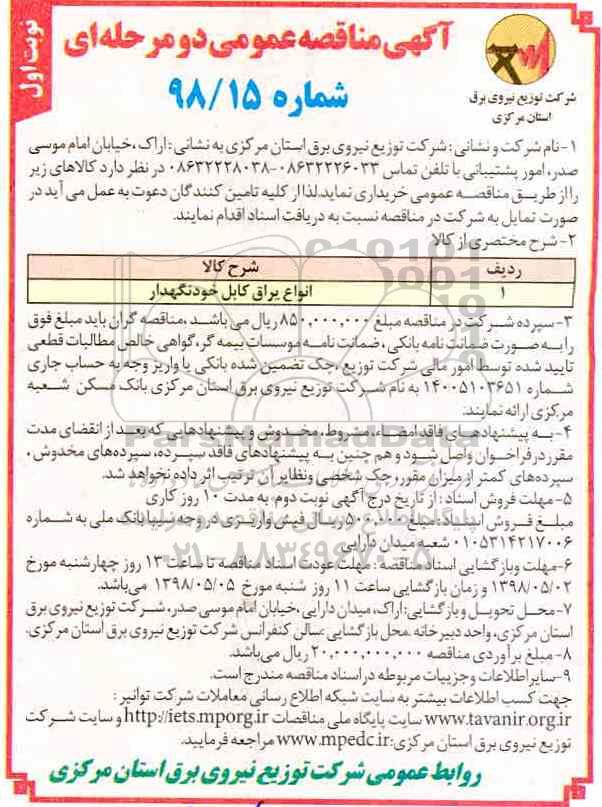 نوبت اول
آگهی مناقصه عمومی دو مرحله‌ای
شماره ۹۸/۱۵
شرکت توزیع نیروی برق
استان مرکزی
۱- نام شرکت و نشانی : شرکت توزیع نیروی برق استان مرکزی به نشانی : اراک ،خیابان امام موسی
صدر، امور پشتیبانی با تلفن تماس ۰۸۶۳۲۲۲۶۰۳۳-۰۸۶۳۲۲۲۸۰۳۸ در نظر دارد کالاهای زیر
را از طریق مناقصه عمومی خریداری نماید.لذا از کلیه تامین کنندگان دعوت به عمل می آید در
صورت تمایل به شرکت در مناقصه نسبت به دریافت اسناد اقدام نمایند.
۲- شرح مختصری از کالا
ردیف شرح کالا
۱ انواع یراق کابل خودنگهدار
۳- سپرده شرکت در مناقصه مبلغ ۸۵۰,۰۰۰,۰۰۰ ریال می باشد ،مناقصه گران باید مبلغ فوق
را به صورت ضمانت نامه بانکی ، ضمانت نامه موسسات بیمه گر، گواهی خالص مطالبات قطعی
تایید شده توسط امور مالی شرکت توزیع ،چک تضمین شده بانکی یا واریز وجه به حساب جاری
شماره ۱۴۰۰۵۱۰۳۶۵۱ به نام شرکت توزیع نیروی برق استان مرکزی بانک مسکن شعبه
مرکزی ارائه نمایند.
۴- به پیشنهادهای فاقد امضاء، مشروط، مخدوش و پیشنهادهایی که بعد از انقضای مدت
مقرر در فراخوان واصل شود و هم چنین به پیشنهادهای فاقد سپرده، سپرده‌های مخدوش ،
سپرده‌های کمتر از میزان مقرر، چک شخصی ونظایر آن ترتیب اثر داده نخواهد شد.
۵- مهلت فروش اسناد : از تاریخ درج آگهی نوبت دوم به مدت ۱۰ روز کاری
مبلغ فروش اسناد: مبلغ ۵۰۰,۰۰۰ ریال فیش واریزی در وجه سیبا بانک ملی به شماره
۰۱۰۵۳۱۴۲۱۷۰۰۶ شعبه میدان دارایی
۶- مهلت وبازگشایی اسناد مناقصه : مهلت عودت اسناد مناقصه تا ساعت ۱۳ روز چهارشنبه مورخ
۱۳۹۸/۰۵/۰۲ و زمان بازگشایی ساعت ۱۱ روز شنبه مورخ ۱۳۹۸/۰۵/۰۵ می‌باشد.
۷- محل تحویل و بازگشایی: اراک، میدان دارایی ،خیابان امام موسی صدر، شرکت توزیع نیروی برق
استان مرکزی، واحد دبیرخانه .محل بازگشایی سالن کنفرانس شرکت توزیع نیروی برق استان مرکزی.
۸- مبلغ برآوردی مناقصه ۲۰,۰۰۰,۰۰۰,۰۰۰ ریال می‌باشد.
۹- سایر اطلاعات وجزییات مربوطه در اسناد مناقصه مندرج است.
جهت کسب اطلاعات بیشتر به سایت شبکه اطلاع رسانی معاملات شرکت توانیر :
www.tavanir.org.ir سایت پایگاه ملی مناقصات http://iets.mporg.ir و سایت شرکت
توزیع نیروی برق استان مرکزی: www.mpedc.ir مراجعه فرمایید.
روابط عمومی شرکت توزیع نیروی برق استان مرکزی
ParsNamadData